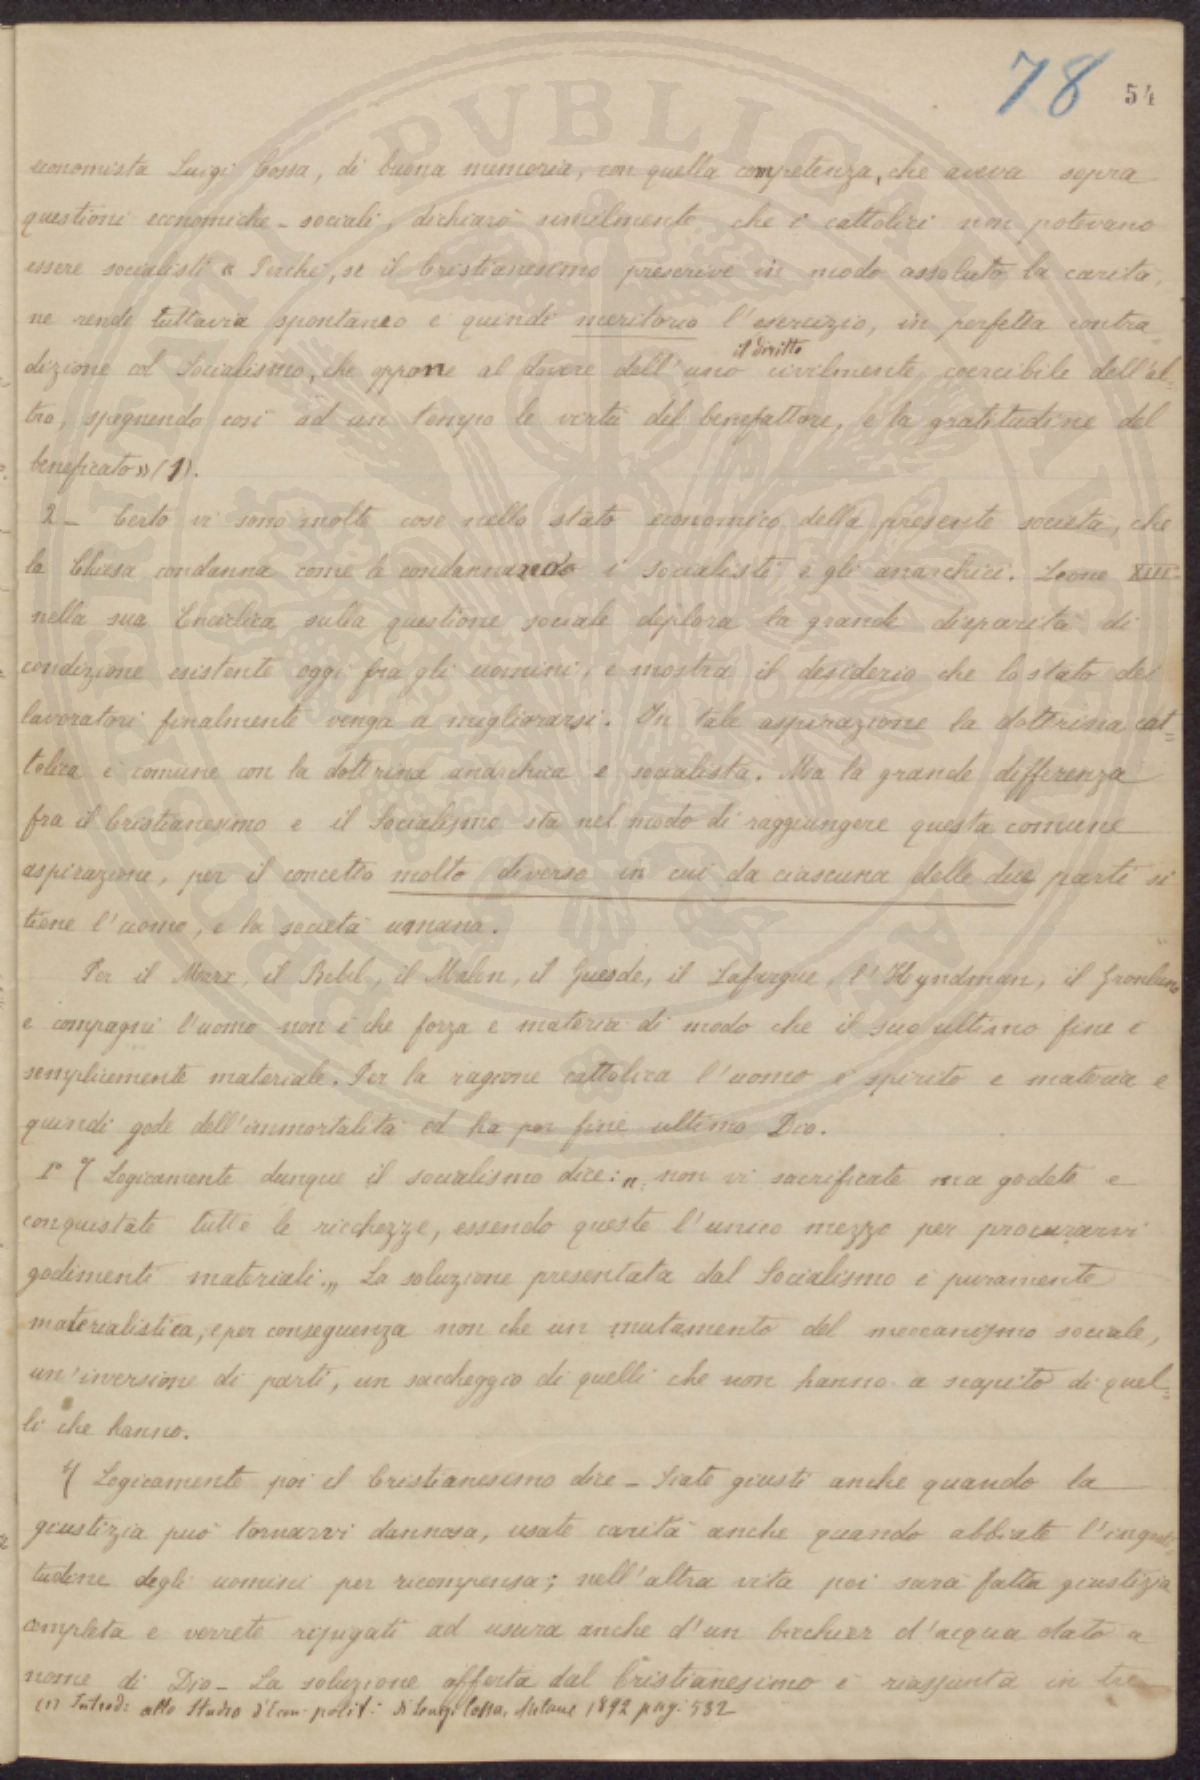 78 54
economista Luigi Cossa, di buona memoria, con quella competenza, che aveva sopra
questioni economiche-sociali, dichiarò similmente che i cattolici non potevano
essere socialisti « Perchè, se il Cristianesimo prescrive in modo assoluto la carità,
ne rende tuttavia spontaneo e quindi meritorio l'esercizio, in perfetta contra
il diritto
dizione col Socialismo, che oppone al dovere dell'uno civilmente coercibile dell'al=
tro, spegnendo così ad un tempo le virtù del benefattore, e la gratitudine del
beneficato» (1).
2 - Certo vi sono molte cose nello stato economico della presente società, che
la Chiesa condanna come le condannando i socialisti e gli anarchici. Leone XIII
nella sua Enciclica sulla questione sociale deplora la grande disparità di
condizione esistente oggi fra gli uomini, e mostra il desiderio che lo stato dei
lavoratori finalmente venga a migliorarsi. In tale aspirazione la dottrina cat=
tolica è comune con la dottrina anarchica e socialista. Ma la grande differenza
fra il Cristianesimo e il Socialismo sta nel modo di raggiungere questa comune
aspirazione, per il concetto molto diverso in cui da ciascuna delle due parti si
tiene l'uomo, e la società umana.
Per il Marx, il Bebel, il Malon, il Guesde, il Lafargue, l'Hyndman, il Gronlund
e compagni l'uomo non è che forza e materia di modo che il suo ultimo fine è
semplicemente materiale. Per la ragione cattolica l'uomo è spirito e materia e
quindi gode dell'immortalità ed ha per fine ultimo Dio.
1° Logicamente dunque il socialismo dice: „ non vi sacrificate ma godete e
conquistate tutte le ricchezze, essendo queste l'unico mezzo per procurarvi
godimenti materiali.„ La soluzione presentata dal Socialismo è puramente
materialistica, e per conseguenza non che un mutamento del meccanismo sociale,
un'inversione di parti, un saccheggio di quelli che non hanno a scapito di quel=
li che hanno.
Logicamente poi il Cristianesimo dice - Siate giusti anche quando la
giustizia può tornarvi dannosa, usate carità anche quando abbiate l'ingrati=
tudine degli uomini per ricompensa; nell'altra vita poi sarà fatta giustizia
completa e verrete ripagati ad usura anche d'un bicchier d'acqua dato a
nome di Dio - La soluzione offerta dal Cristianesimo è riassunta in tre
(1) Introd: allo Studio d'Econ. polit: di Luigi Cossa, Milano 1892 pag. 532